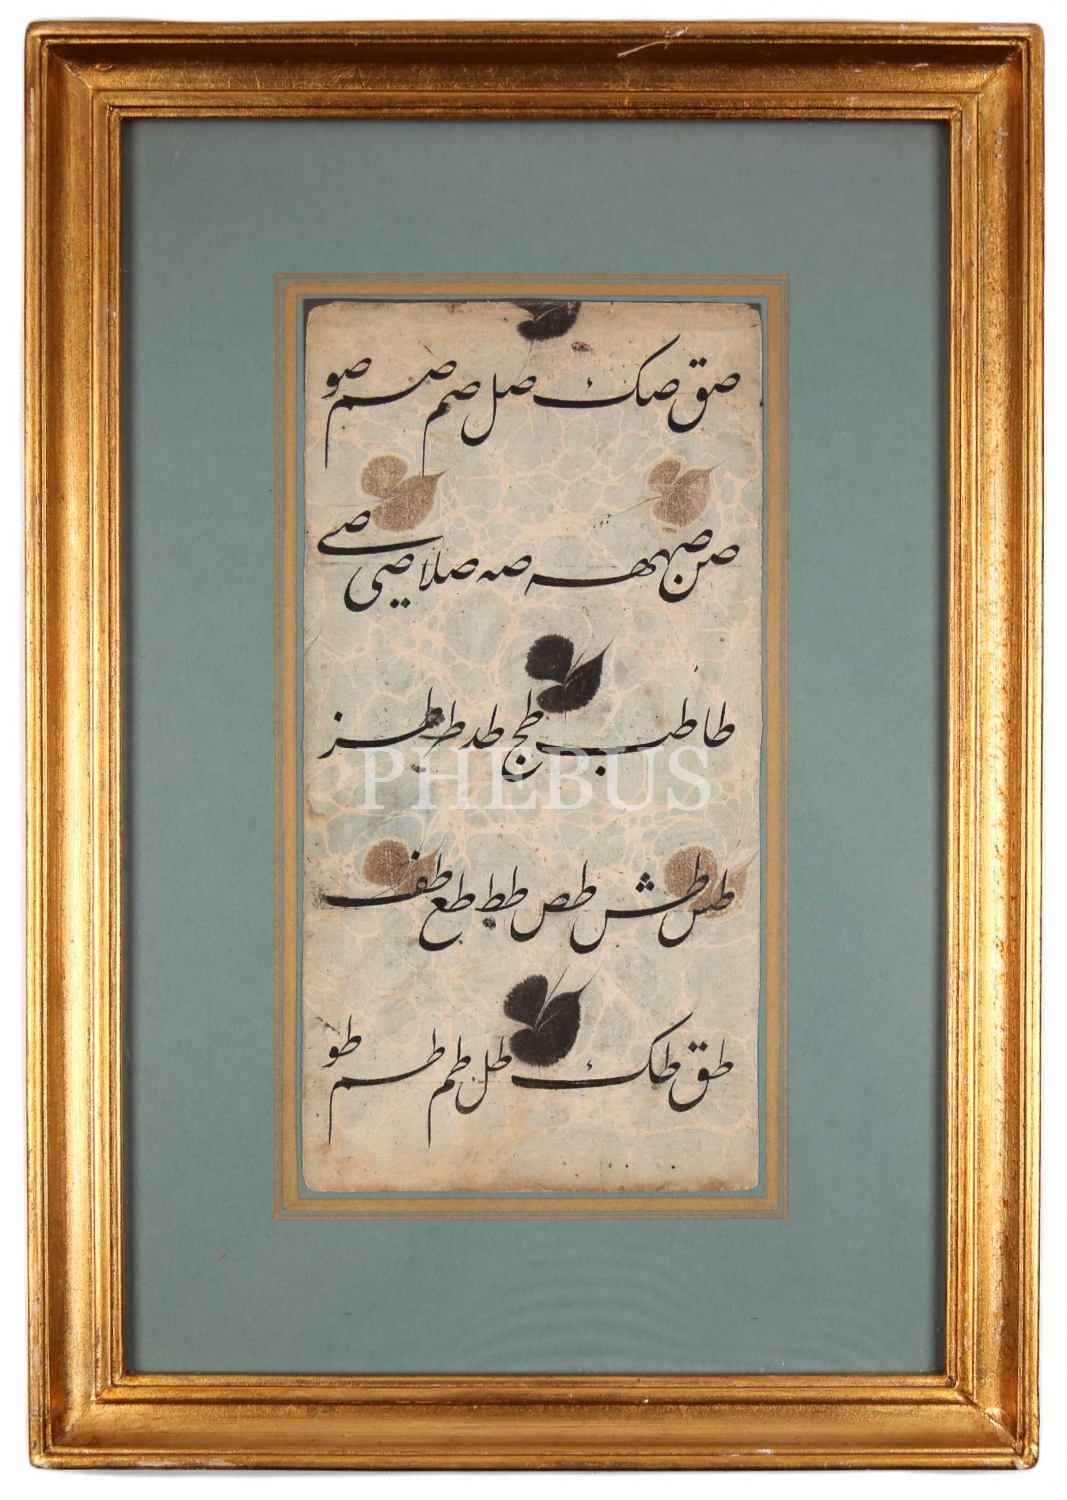 صق صک صل صم صم صو
صن صهه صه صلا صی صے
طا طب طج طد طر طز
طس طش طص طط طع طف
طق طک طل طم طم طو
PHEBUS